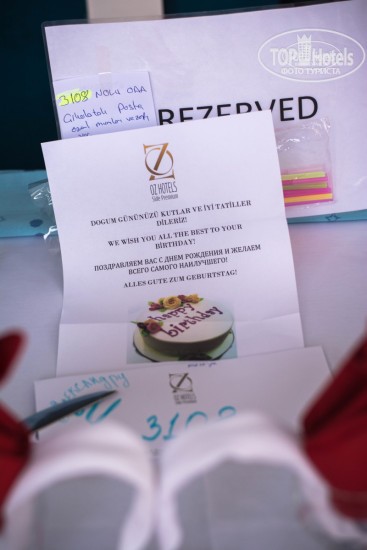 TOPHotels
ФОТО ТУРИСТА
3108 NOLU ODA
Çikolatalı Pasta
REZERVED
OZ HOTELS
Side Premium
DOGUM GÜNÜNÜZÜ KUTLAR VE İYİ TATİLLER
DİLERİZ!
WE WISH YOU ALL THE BEST TO YOUR
BIRTHDAY!
ПОЗДРАВЛЯЕМ ВАС С ДНЕМ РОЖДЕНИЯ И ЖЕЛАЕМ
ВСЕГО САМОГО НАИЛУЧШЕГО!
ALLES GUTE ZUM GEBURTSTAG!
happy
birthday
OZ HOTELS
3108